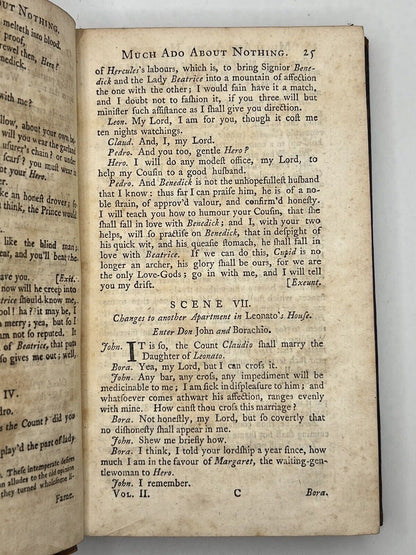 BOUT NOTHING.
melteth into blood.
proof,
rewel then, Here?
enedick.
with me?
llow, about your own bu-
will you wear the garland
usurer's chain? or under
scarf? you must wear it
your Hero.
an honest drover; so
think, the Prince would
like the blind man;
eat, and you'll beat the
ave you. [Exit.
now will he creep into
Beatrice should know me,
ool! ha? it may be, I
merry; yea, but so I
am not so reputed. It
of Beatrice, that puts
so gives me out; well,
IV.
dro.
s the Count? did you
play'd the part of lady
These intemperate desires
alludes to the old opinion
they turned wholesome li-
Fame.
MUCH ADO ABOUT NOTHING. 25
of Hercules's labours, which is, to bring Signior Bene-
dick and the Lady Beatrice into a mountain of affection
the one with the other; I would fain have it a match,
and I doubt not to fashion it, if you three will but
minister such assistance as I shall give you direction.
Leon. My Lord, I am for you, though it cost me
ten nights watchings.
Claud. And, I, my Lord.
Pedro. And you too, gentle Hero?
Hero. I will do any modest office, my Lord, to
help my Cousin to a good husband.
Pedro. And Benedick is not the unhopefullest husband
that I know: thus far I can praise him, he is of a no-
ble strain, of approv'd valour, and confirm'd honesty.
I will teach you how to humour your Cousin, that she
shall fall in love with Benedick; and I, with your two
helps, will so practise on Benedick, that in despight of
his quick wit, and his queasie stomach, he shall fall in
love with Beatrice. If we can do this, Cupid is no
longer an archer, his glory shall be ours, for we are
the only Love-Gods; go in with me, and I will tell
you my drift. [Exeunt.
SCENE VII.
Changes to another Apartment in Leonato's House.
Enter Don John and Borachio.
John. IT is so, the Count Claudio shall marry the
Daughter of Leonato.
Bora. Yea, my Lord, but I can cross it.
John. Any bar, any cross, any impediment will be
medicinable to me; I am sick in displeasure to him; and
whatsoever comes athwart his affection, ranges evenly
with mine. How canst thou cross this marriage?
Bora. Not honestly, my Lord, but so covertly that
no dishonesty shall appear in me.
John. Shew me briefly how.
Bora. I think, I told your lordship a year since, how
much I am in the favour of Margaret, the waiting-gen-
tlewoman to Hero.
John. I remember.
VOL. II. C Bora.